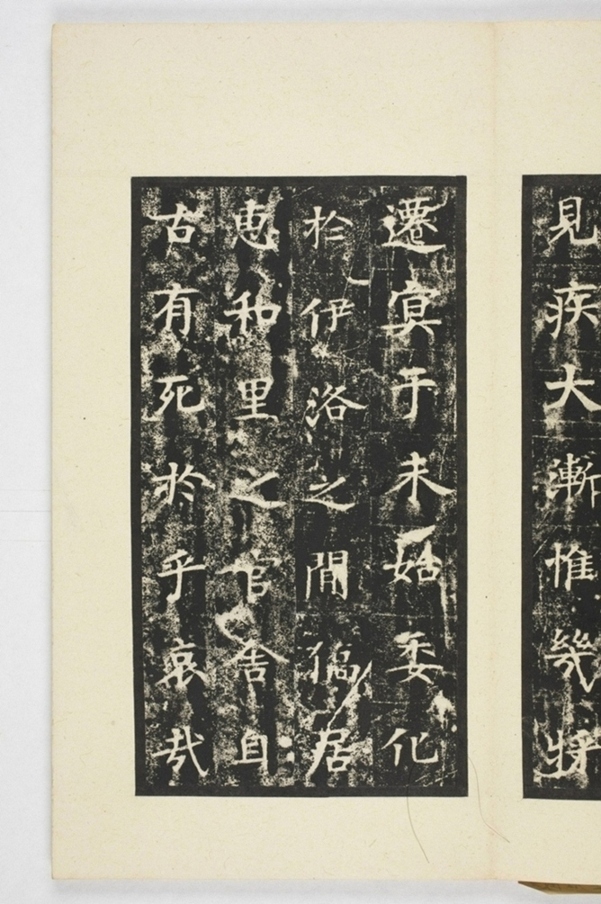 見疾大漸惟幾將
遷㝠于未始委化
於伊洛之間居
恵和里之官舍自
古有死於乎哀哉